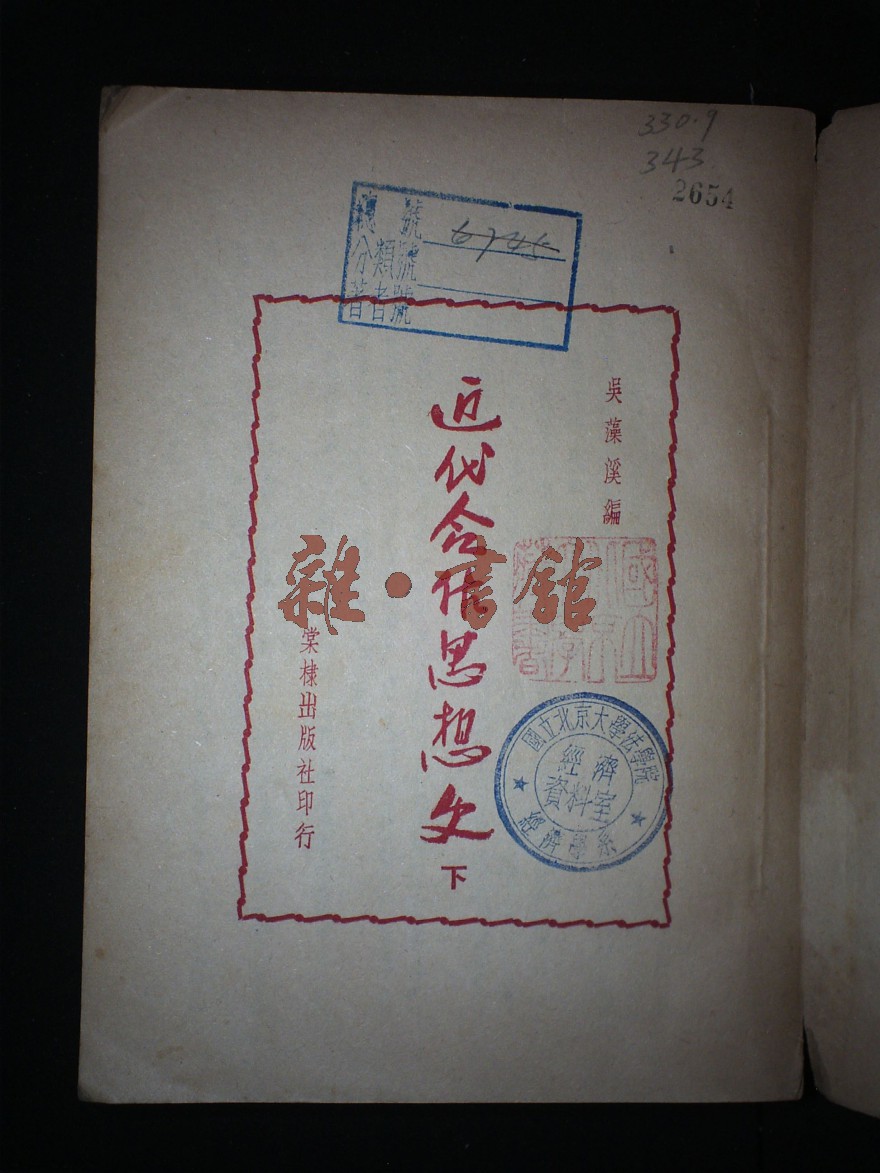 330.9
343
2654
總號
6745
分類號
著者號
吳藻溪編
近代合作思想史
下
棠棣出版社印行
雜·書館
國立北京大學法學院
經濟
資料室
經濟學系